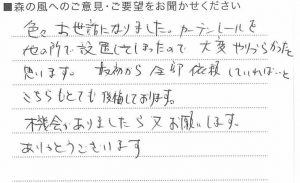 ■森の風へのご意見・ご要望をお聞かせください
色々お世話になりました。カーテンレールを
他の所で設置してしまったので大変やりづらかったと
思います。最初から全部依頼していれば…と
こちらもとても後悔しております。
機会がありましたら又お願いします。
ありがとうございます